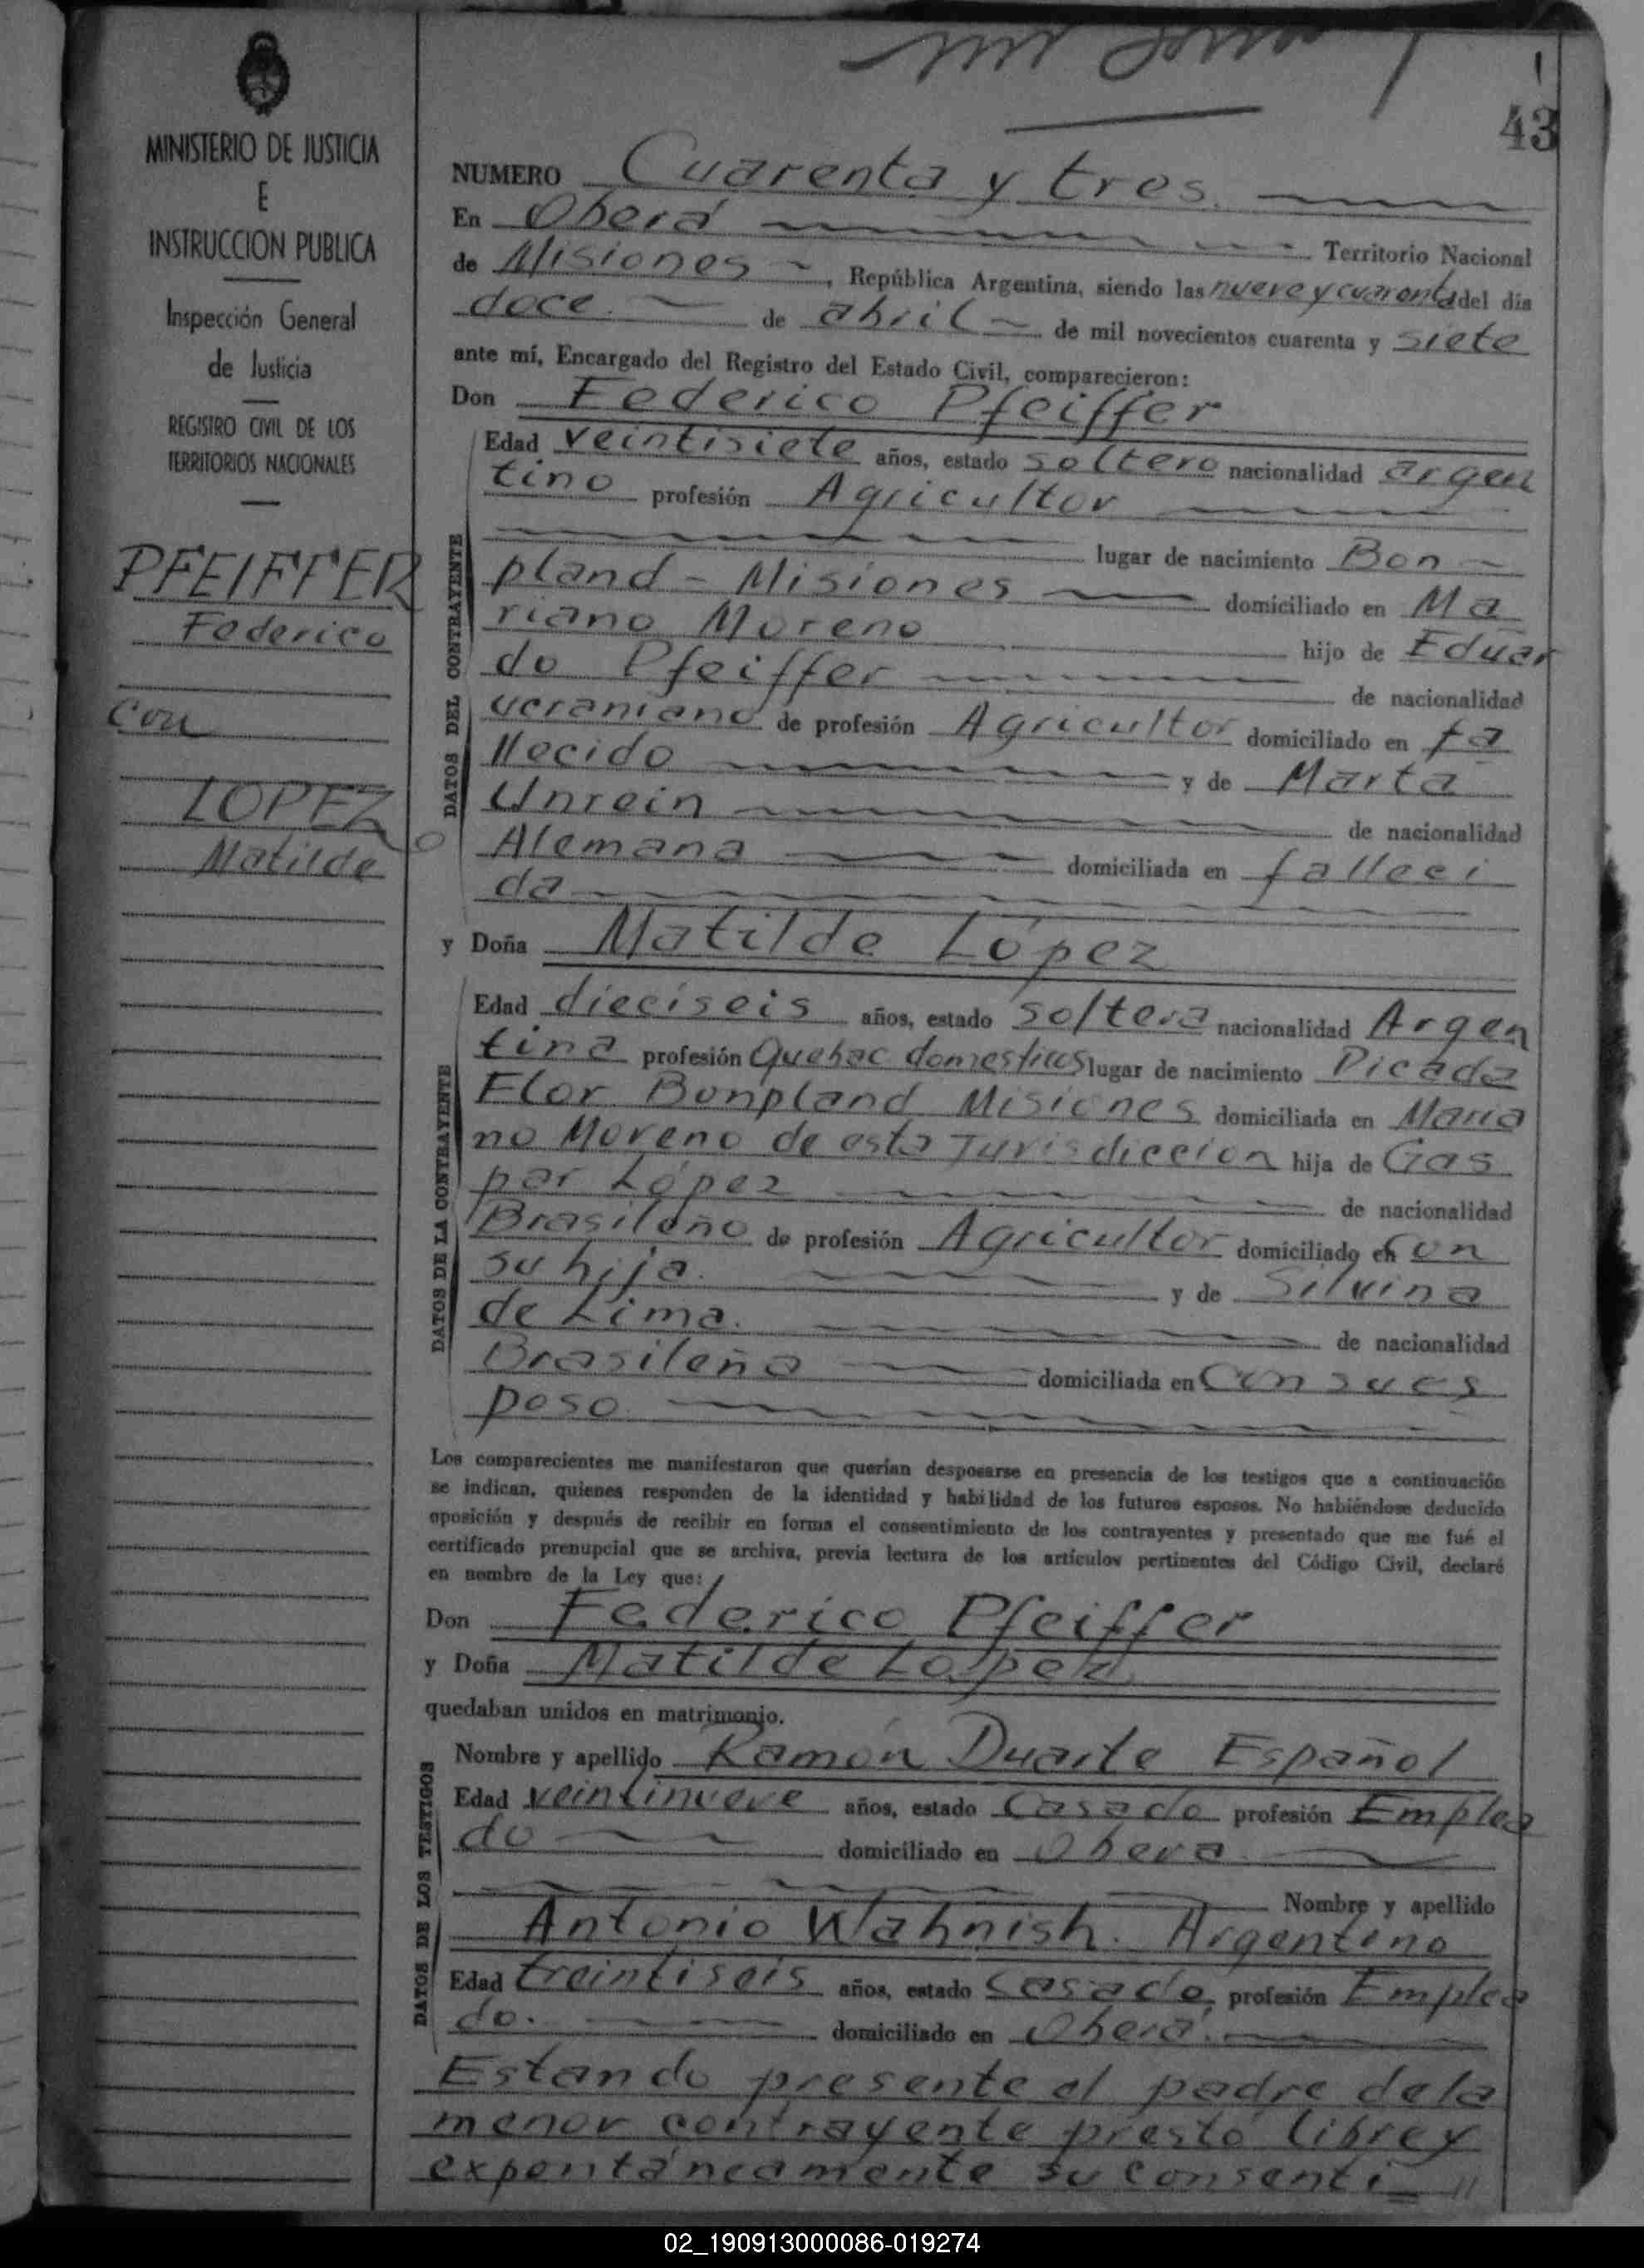 43
MINISTERIO DE JUSTICIA
E
INSTRUCCION PUBLICA
Inspección General
de Justicia
REGISTRO CIVIL DE LOS
TERRITORIOS NACIONALES
PFEIFFER
Federico
con
LOPEZ
Matilde
NUMERO Cuarenta y tres.
En Oberá Territorio Nacional
de Misiones, República Argentina, siendo las nueve y cuarenta del día
doce. de abril de mil novecientos cuarenta y siete
ante mí, Encargado del Registro del Estado Civil, comparecieron:
Don Federico Pfeiffer
DATOS DEL CONTRAYENTE
Edad veintisiete años, estado soltero nacionalidad argen
tino profesión Agricultor
lugar de nacimiento Bon
pland - Misiones domiciliado en Ma
riano Moreno hijo de Eduar
do Pfeiffer de nacionalidad
ucraniano de profesión Agricultor domiciliado en fa
llecido y de Marta
Unrein de nacionalidad
Alemana domiciliada en falleci
da
y Doña Matilde López
DATOS DE LA CONTRAYENTE
Edad dieciseis años, estado soltera nacionalidad Argen
tina profesión Quehac domesticos lugar de nacimiento Picada
Flor Bonpland Misiones domiciliada en Maria
no Moreno de esta Jurisdiccion hija de Gas
par López de nacionalidad
Brasileño de profesión Agricultor domiciliado en con
su hija. y de Silvina
de Lima. de nacionalidad
Brasileña domiciliada en Con su es
poso.
Los comparecientes me manifestaron que querían desposarse en presencia de los testigos que a continuación
se indican, quienes responden de la identidad y habilidad de los futuros esposos. No habiéndose deducido
oposición y después de recibir en forma el consentimiento de los contrayentes y presentado que me fué el
certificado prenupcial que se archiva, previa lectura de los artículos pertinentes del Código Civil, declaré
en nombre de la Ley que:
Don Federico Pfeiffer
y Doña Matilde Lopez
quedaban unidos en matrimonio.
DATOS DE LOS TESTIGOS
Nombre y apellido Ramón Duarte Español
Edad veintinueve años, estado Casado profesión Emplea
do domiciliado en Obera
Nombre y apellido
Antonio Wahnish. Argentino
Edad treintiseis años, estado casado, profesión Emplea
do. domiciliado en Oberá.
Estando presente el padre de la
menor contrayente prestó libre y
expontáneamente su consenti
02_190913000086-019274